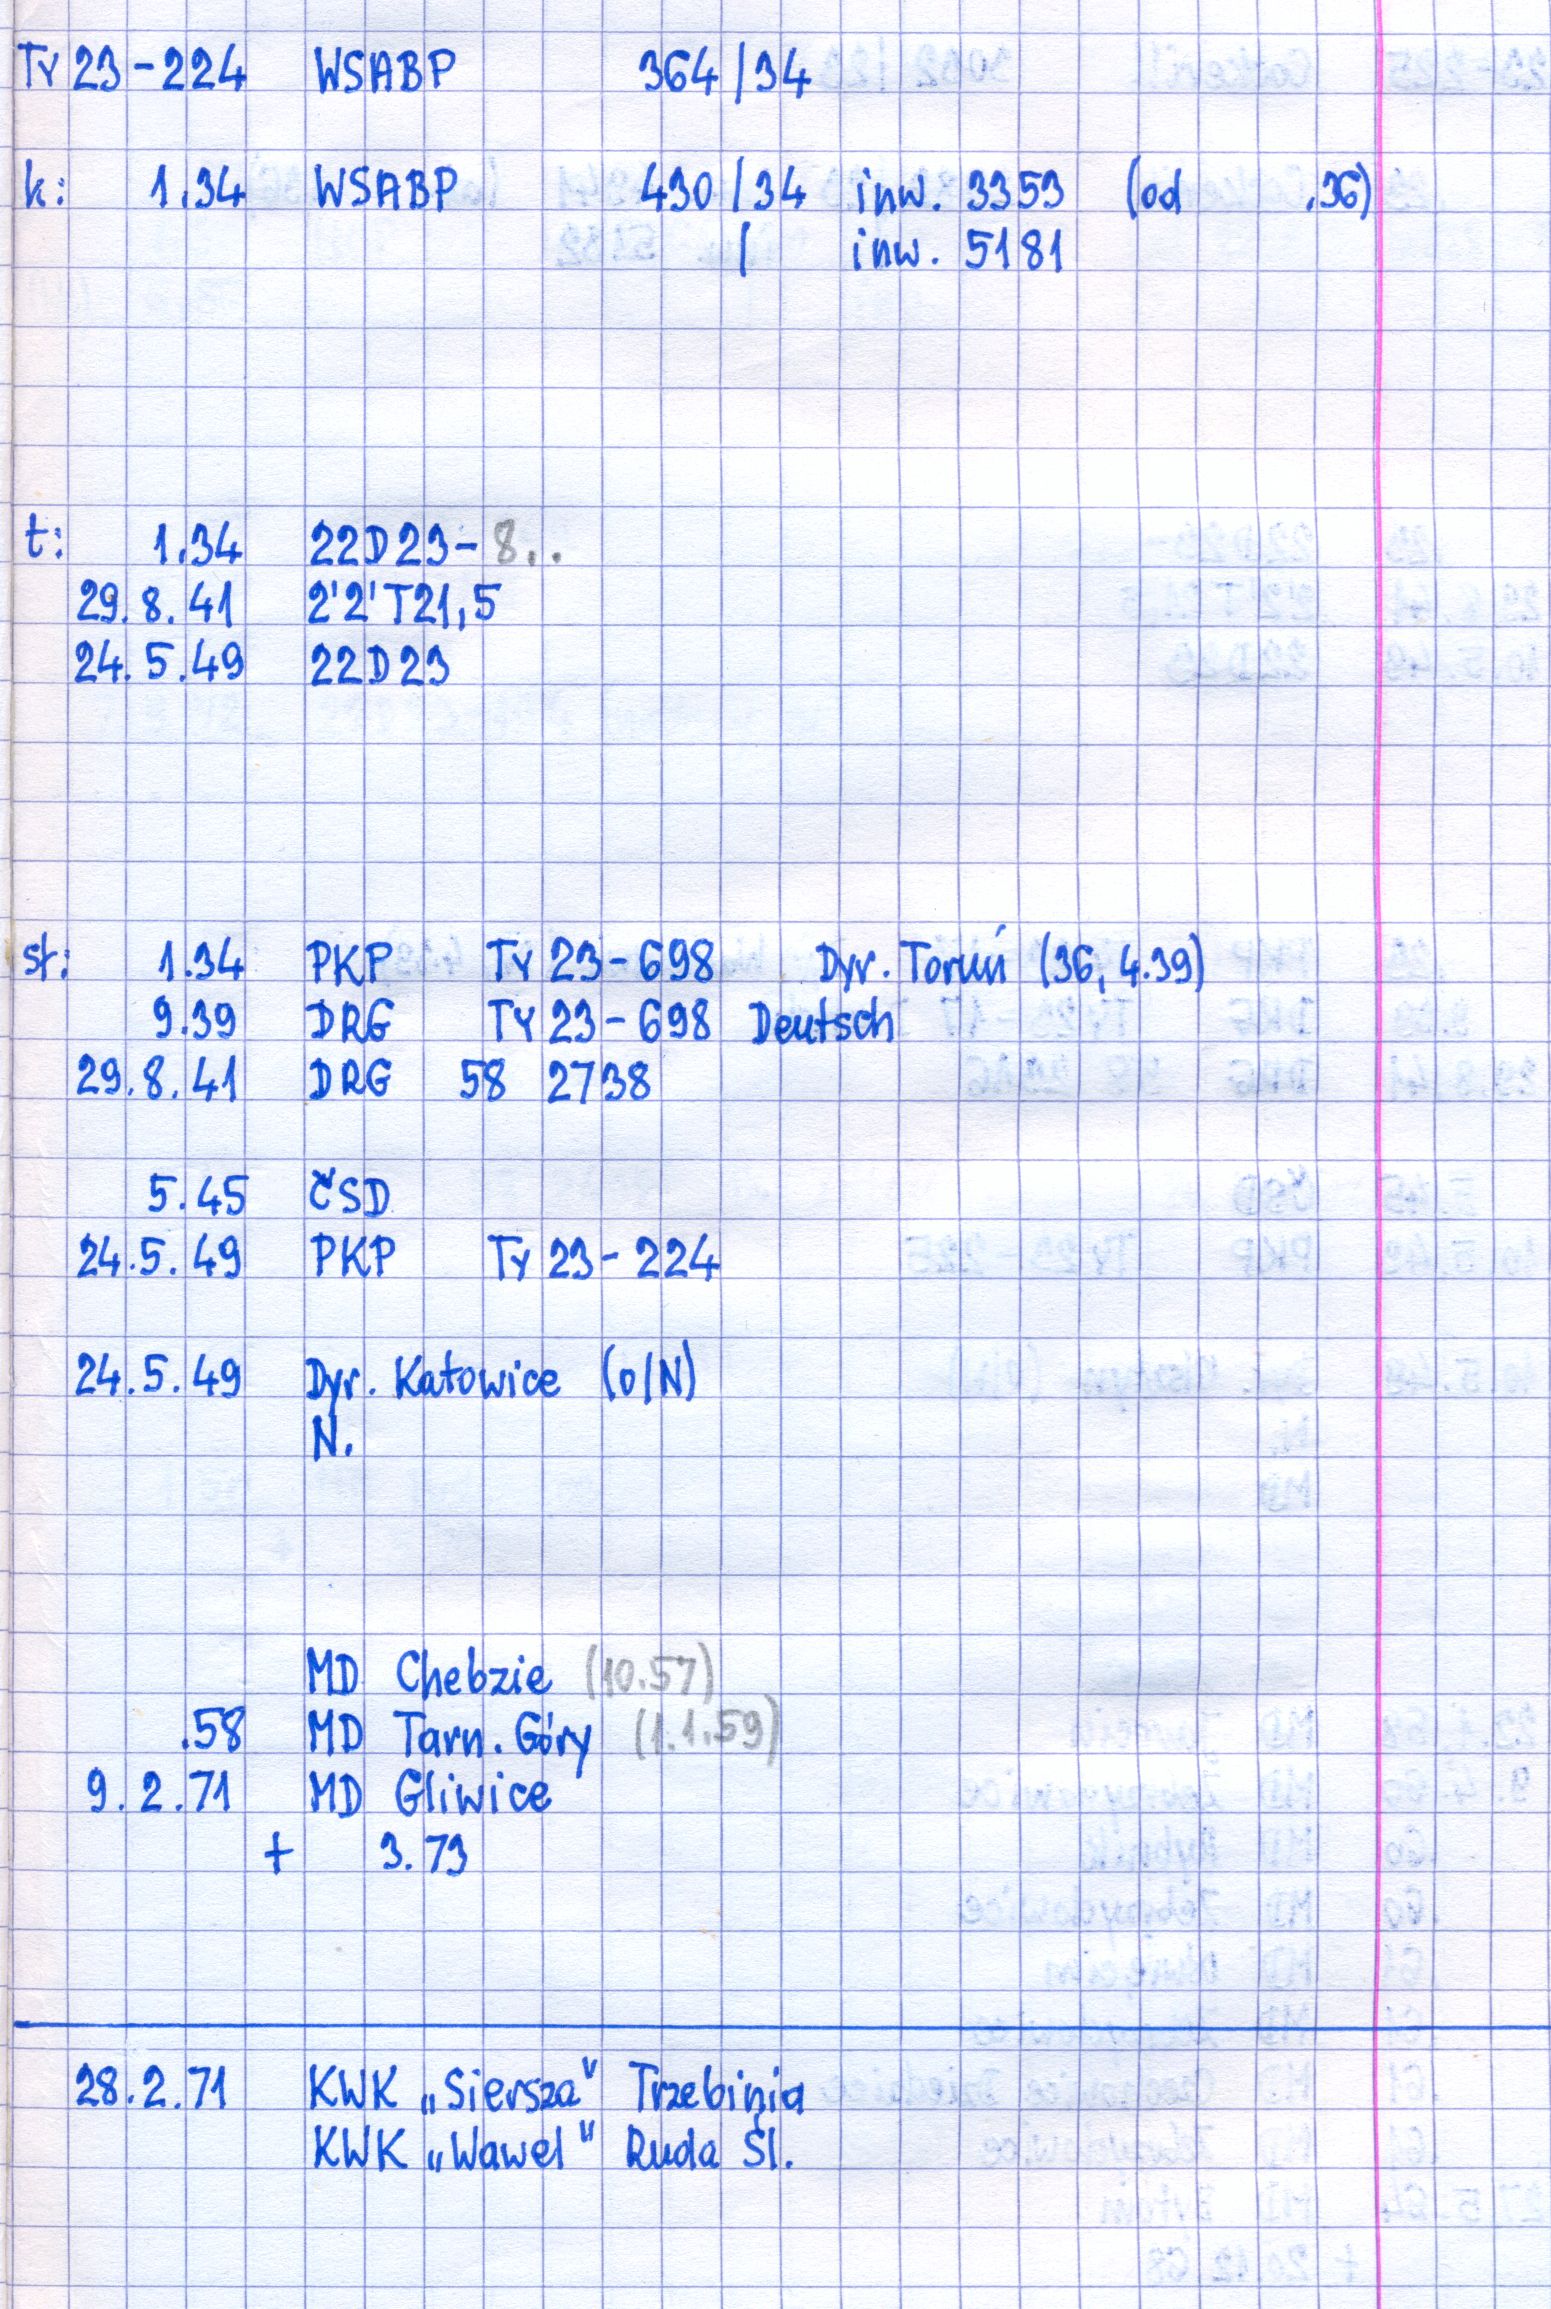 Ty 23-224 WSABP 364/34
k: 1.34 WSABP 430/34 inw. 3353 (od .36)
/ inw. 5181
t: 1.34 22D23-8..
29.8.41 2'2'T21,5
24.5.49 22D23
st: 1.34 PKP Ty 23-698 Dyr. Toruń (36, 4.39)
9.39 DRG Ty 23-698 Deutsch
29.8.41 DRG 58 2738
5.45 ČSD
24.5.49 PKP Ty 23-224
24.5.49 Dyr. Katowice (o/N)
N.
MD Chebzie (10.57)
.58 MD Tarn. Góry (1.1.59)
9.2.71 MD Gliwice
+ 3.73
28.2.71 KWK „Siersza" Trzebinia
KWK „Wawel" Ruda Śl.